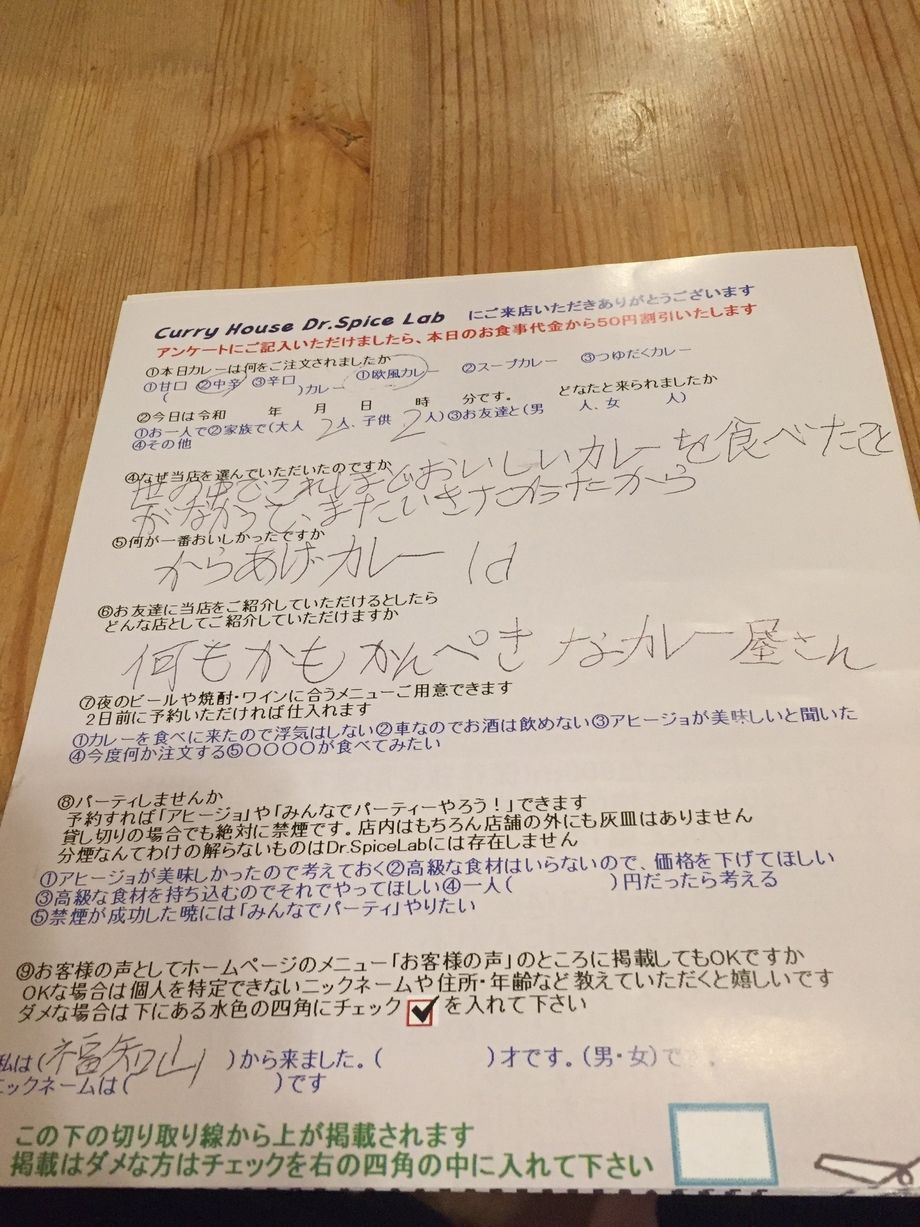 Curry House Dr.Spice Lab にご来店いただきありがとうございます
アンケートにご記入いただけましたら、本日のお食事代金から50円割引いたします
①本日カレーは何をご注文されましたか
①甘口 ②中辛 ③辛口 ①欧風カレー ②スープカレー ③つゆだくカレー
( )カレー
②今日は令和 年 月 日 時 分です。 どなたと来られましたか
①お一人で②家族で(大人 2人、子供 2人)③お友達と(男 人、女 人)
④その他
④なぜ当店を選んでいただいたのですか
世の中でこれほどおいしいカレーを食べたこと
がなかって、またいきたかったから
⑤何が一番おいしかったですか
からあげカレー
⑥お友達に当店をご紹介していただけるとしたら
どんな店としてご紹介していただけますか
何もかもかんぺきなカレー屋さん
⑦夜のビールや焼酎・ワインに合うメニューご用意できます
2日前に予約いただければ仕入れます
①カレーを食べに来たので浮気はしない②車なのでお酒は飲めない③アヒージョが美味しいと聞いた
④今度何か注文する⑤〇〇〇〇が食べてみたい
⑧パーティしませんか
予約すれば「アヒージョ」や「みんなでパーティーやろう!」できます
貸し切りの場合でも絶対に禁煙です。店内はもちろん店舗の外にも灰皿はありません
分煙なんてわけの解らないものはDr.SpiceLabには存在しません
①アヒージョが美味しかったので考えておく②高級な食材はいらないので、価格を下げてほしい
③高級な食材を持ち込むのでそれでやってほしい④一人( )円だったら考える
⑤禁煙が成功した暁には「みんなでパーティ」やりたい
⑨お客様の声としてホームページのメニュー「お客様の声」のところに掲載してもOKですか
OKな場合は個人を特定できないニックネームや住所・年齢など教えていただくと嬉しいです
ダメな場合は下にある水色の四角にチェック を入れて下さい
私は(福知山 )から来ました。( )才です。(男・女)で
ニックネームは( )です
この下の切り取り線から上が掲載されます
掲載はダメな方はチェックを右の四角の中に入れて下さい